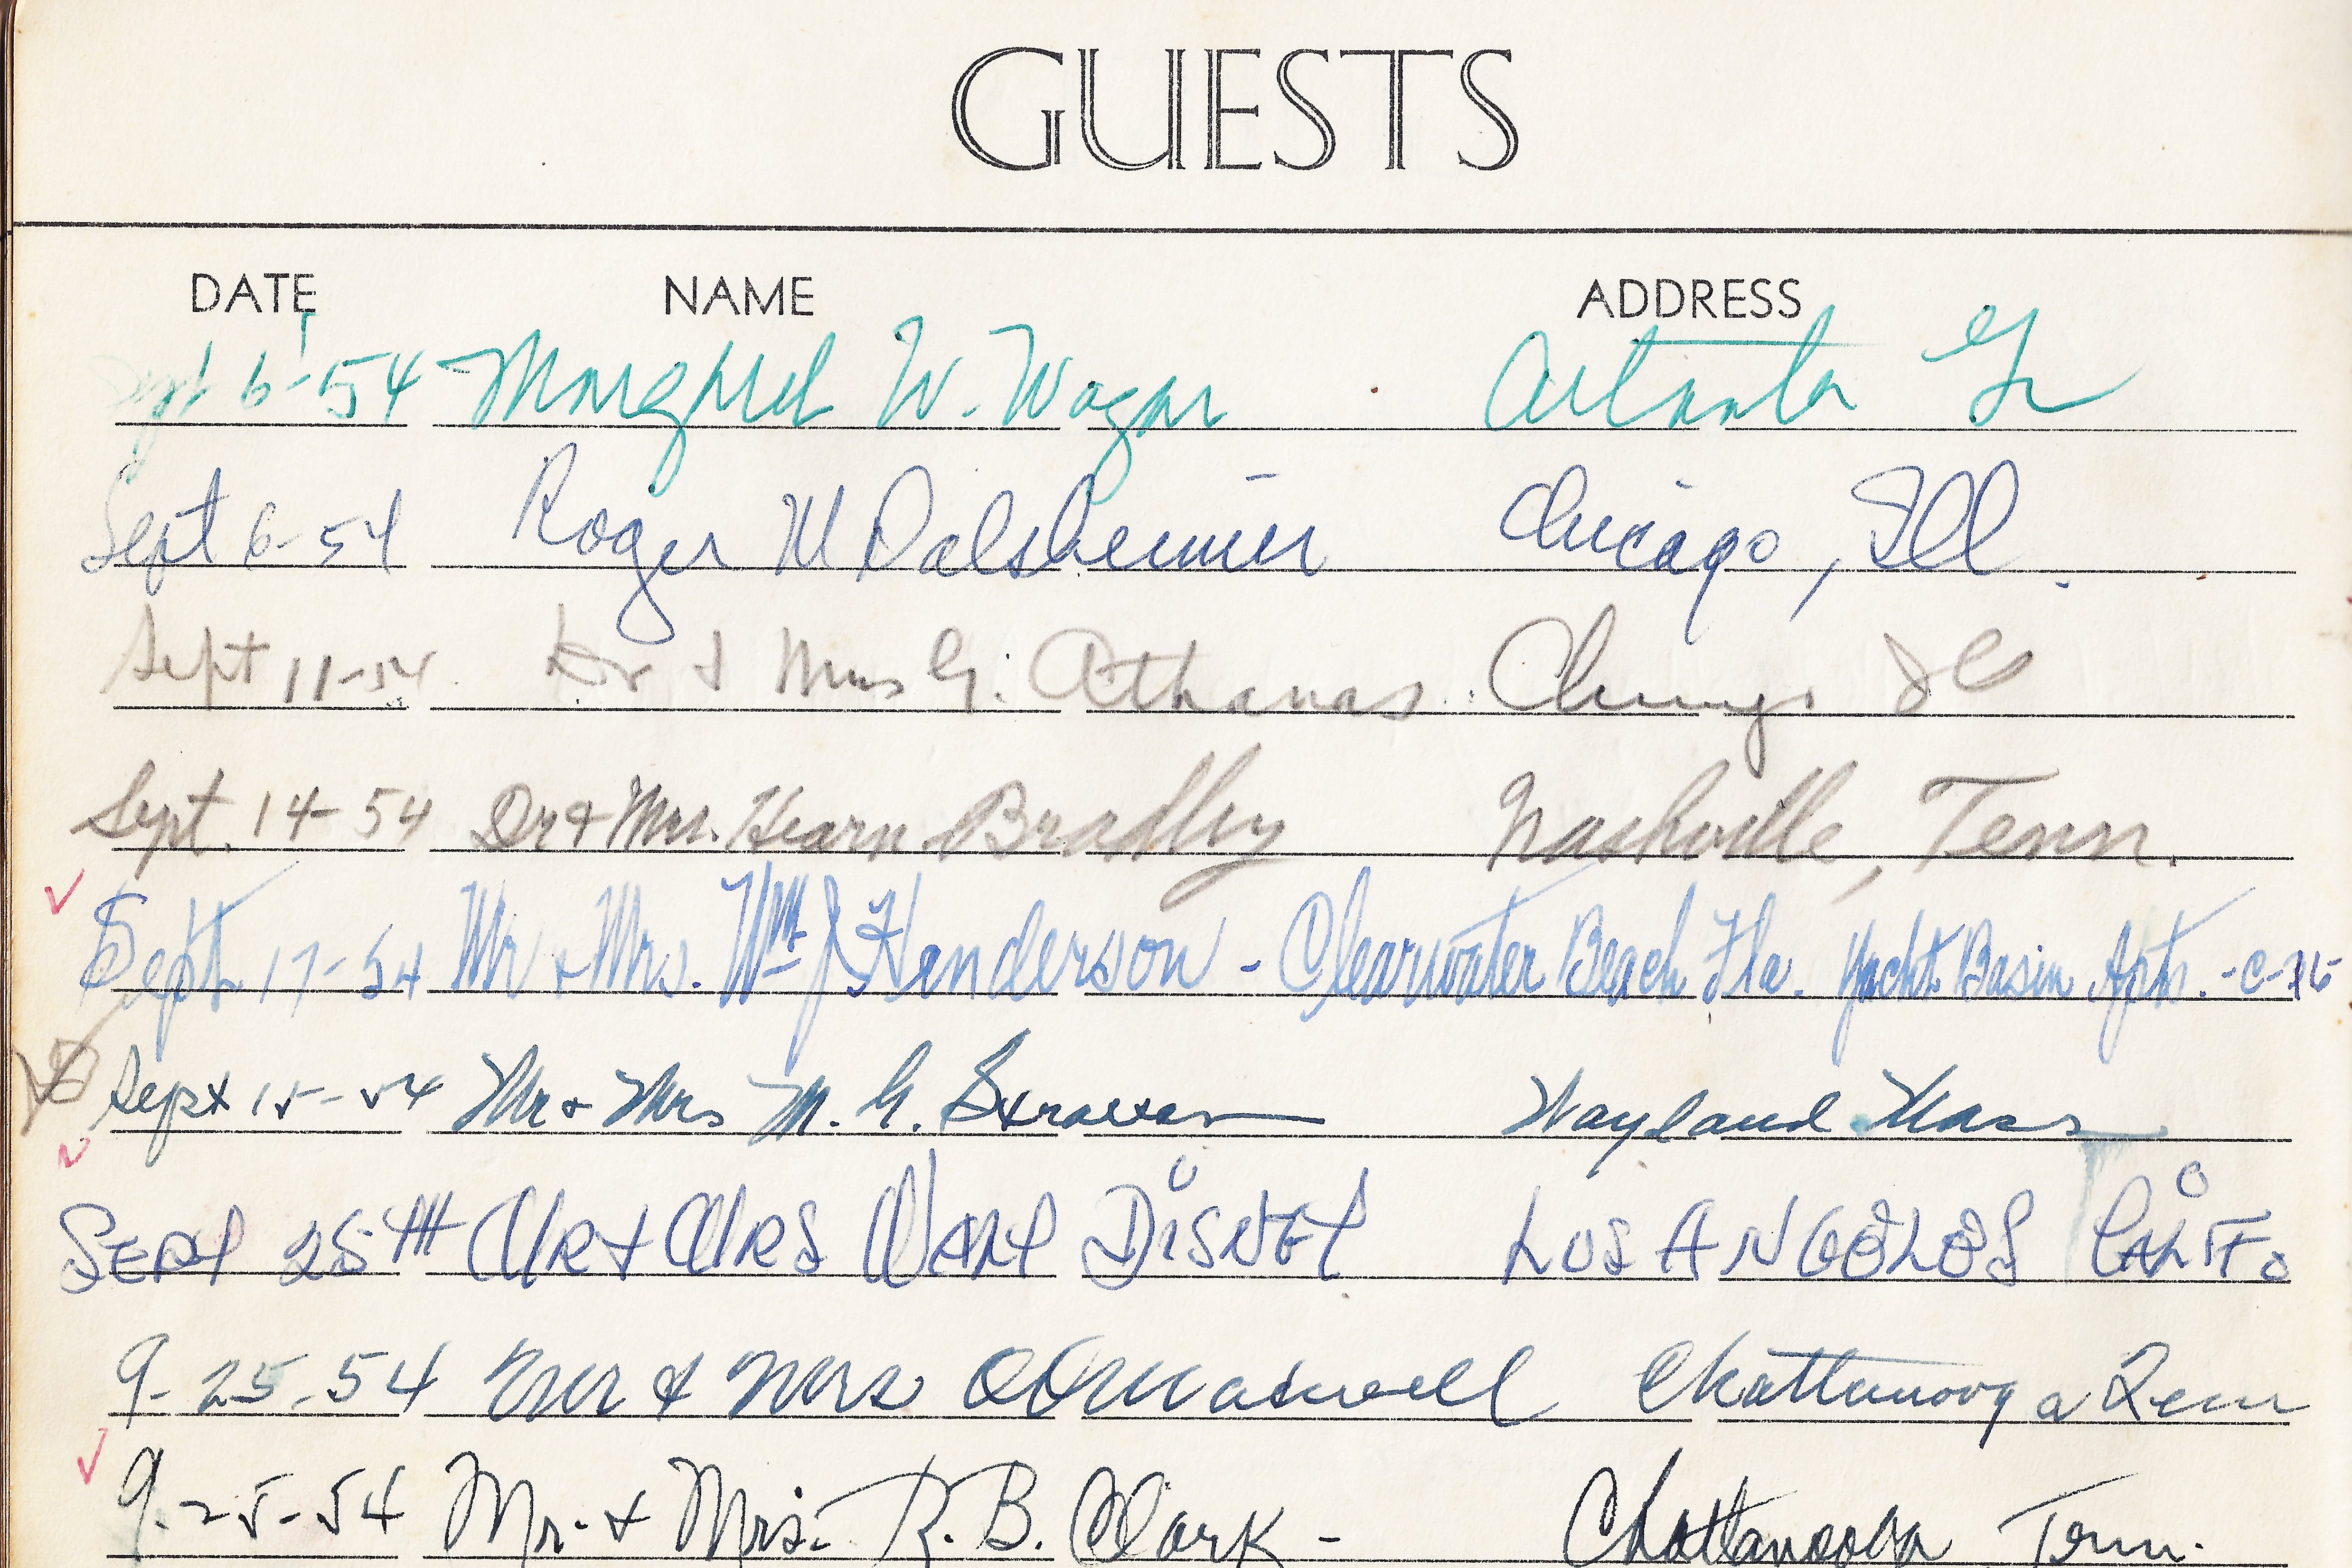 GUESTS
DATE NAME ADDRESS
Sept 6-54 Margaret W. Wagar Atlanta Ga
Sept 6-54 Roger M Dalsheimer Chicago, Ill.
Sept 11-54. Dr & Mrs G. Athanas Chicago Ill
Sept. 14-54 Dr & Mrs. Hearn Bradley Nashville, Tenn.
Sept. 17-54 Mr & Mrs. Wm J Henderson - Clearwater Beach Fla. Yacht Basin Apts. -C-
Sept 15-54 Mr & Mrs M. G. Wayland Mass
SEPT 25TH MR & MRS WALT DISNEY LOS ANGELES CALIF.
9-25-54 Mr & Mrs Chattanooga Tenn
9-25-54 Mr. & Mrs. R. B. Clark - Chattanooga Tenn.